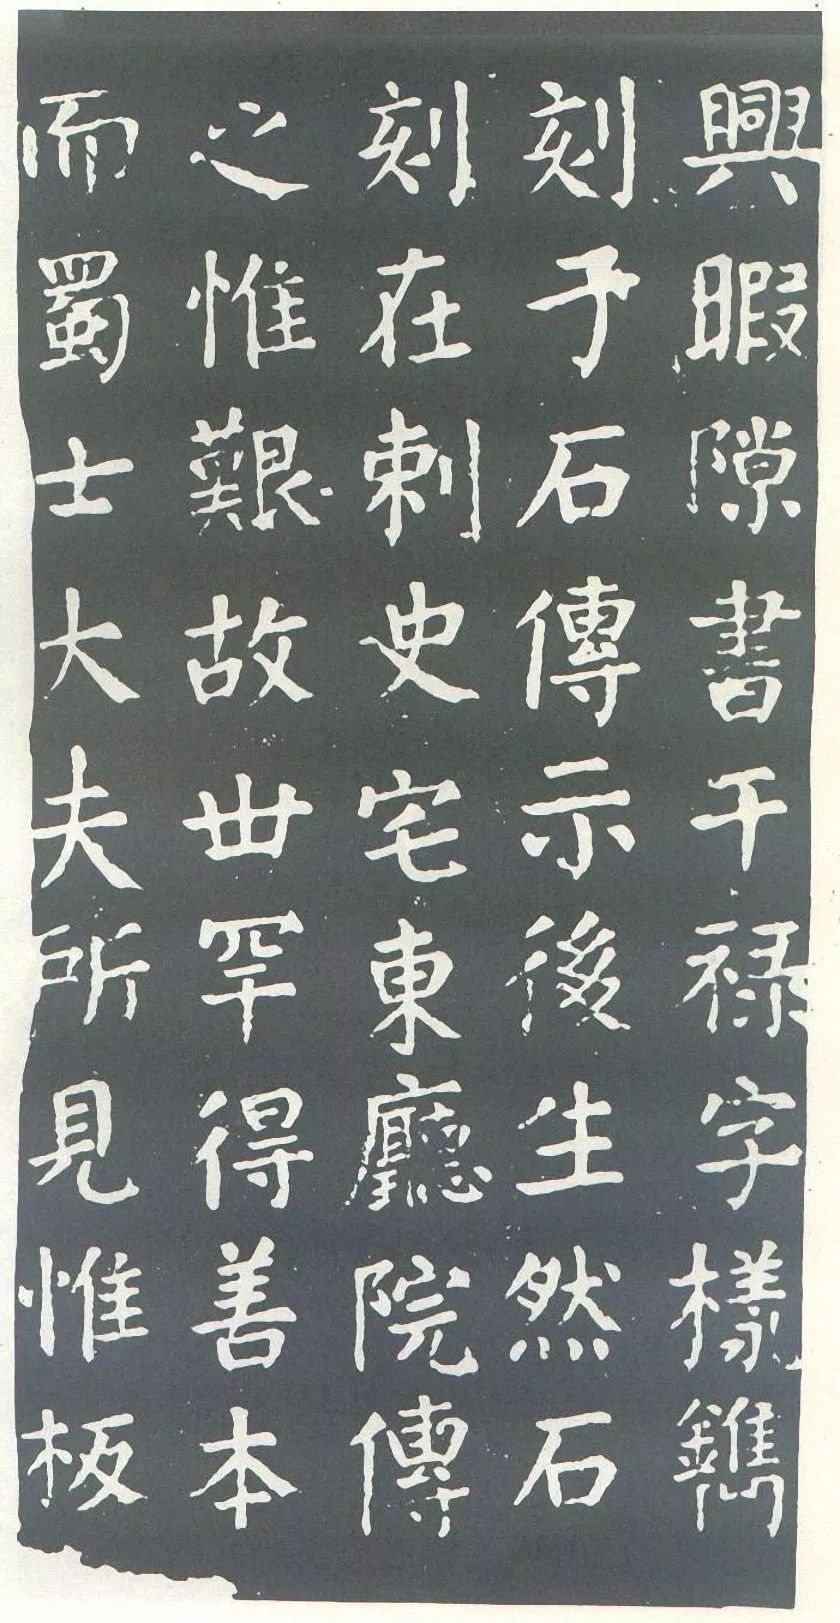 興暇隙書干禄字樣鐫
刻于石傳示後生然石
刻在刺史宅東廳院傳
之惟艱故丗罕得善本
而蜀士大夫所見惟板